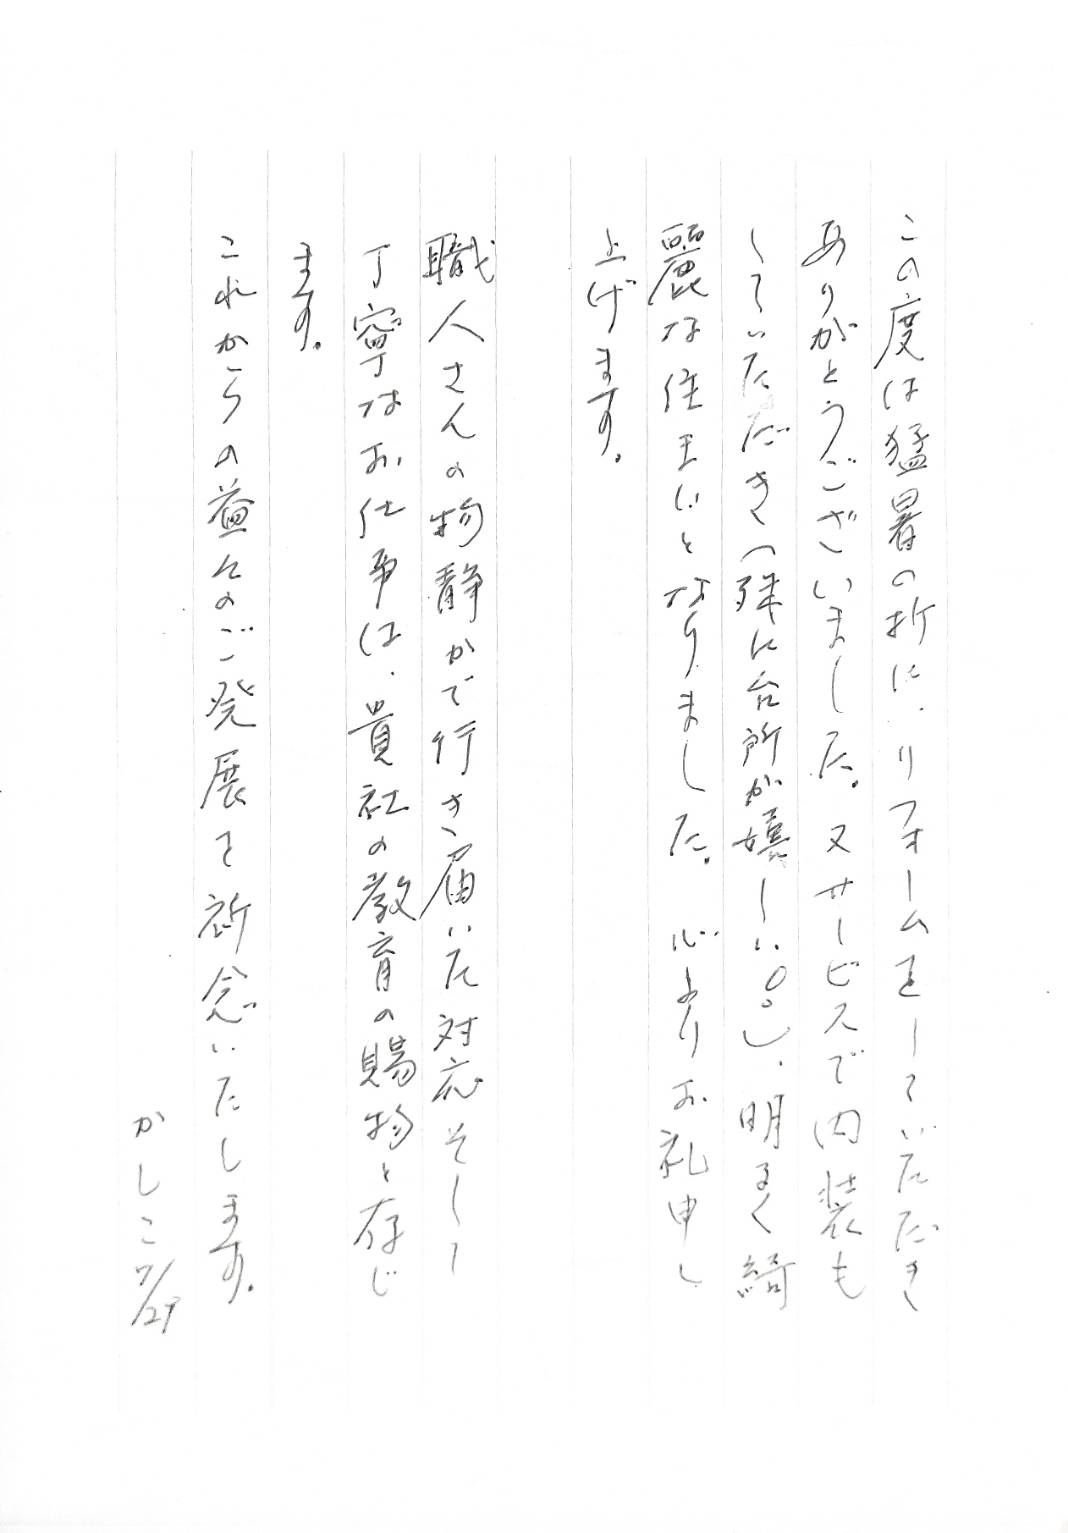 この度は猛暑の折に、リフォームをしていただき
ありがとうございました。又サービスで内装も
していただき(殊に台所が嬉しい。)、明るく綺
麗な住まいとなりました。心よりお礼申し
上げます。
職人さんの物静かで行き届いた対応そして
丁寧なお仕事は、貴社の教育の賜物と存じ
ます。
これからの益々のご発展を祈念いたします。
かしこ 7/29